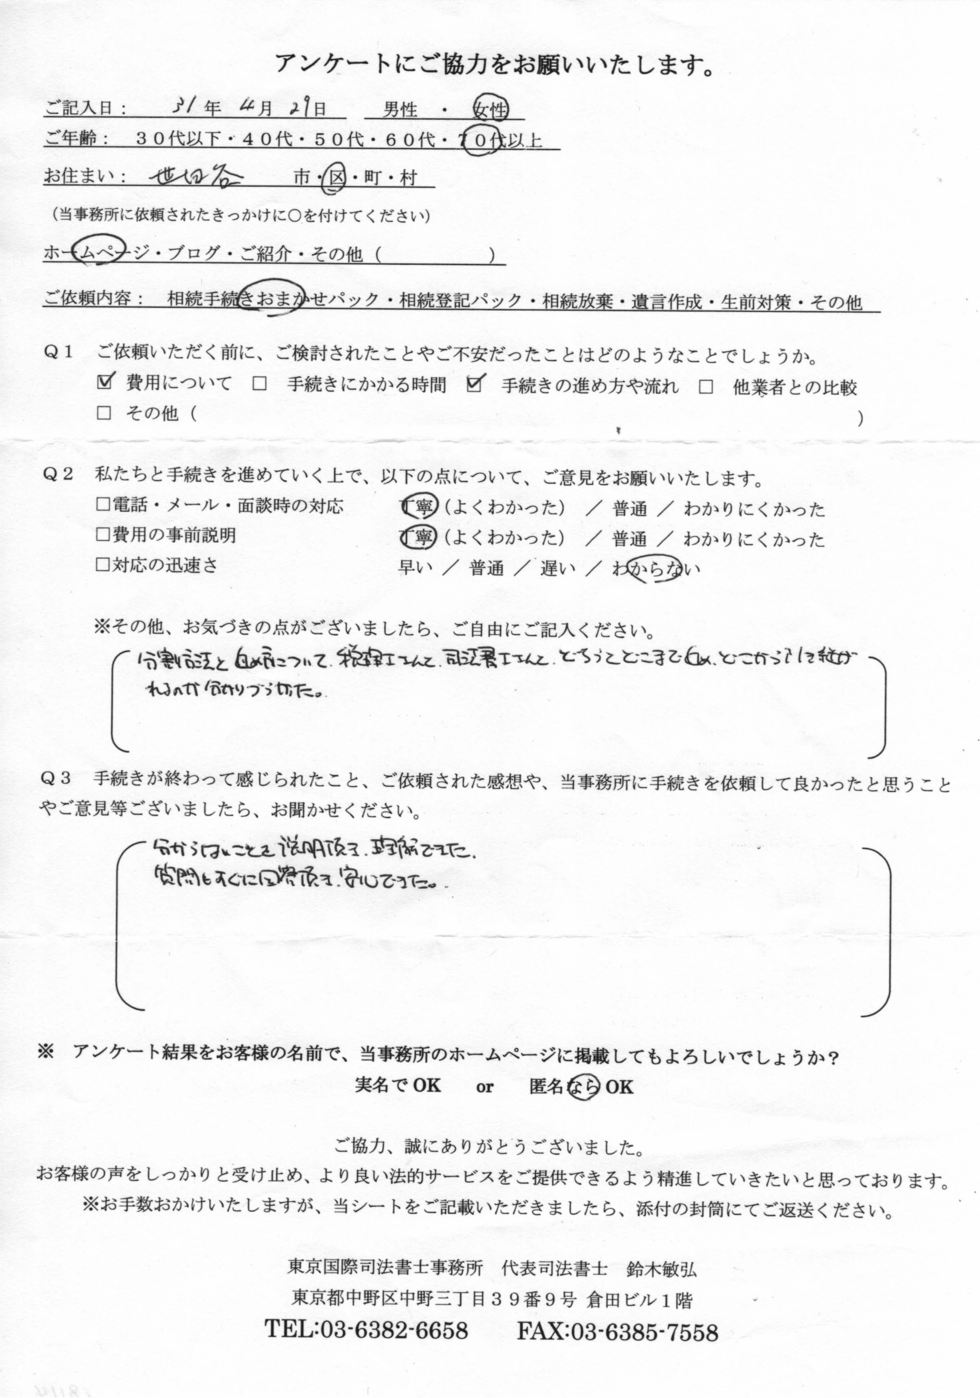 アンケートにご協力をお願いいたします。
ご記入日： 31年 4月 29日 男性 ・ 女性
ご年齢： 30代以下・40代・50代・60代・70代以上
お住まい： 世田谷 市・区・町・村
（当事務所に依頼されたきっかけに○を付けてください）
ホームページ・ブログ・ご紹介・その他（ ）
ご依頼内容： 相続手続きおまかせパック・相続登記パック・相続放棄・遺言作成・生前対策・その他
Q1 ご依頼いただく前に、ご検討されたことやご不安だったことはどのようなことでしょうか。
☑ 費用について □ 手続きにかかる時間 ☑ 手続きの進め方や流れ □ 他業者との比較
□ その他（ ）
Q2 私たちと手続きを進めていく上で、以下の点について、ご意見をお願いいたします。
□電話・メール・面談時の対応 丁寧（よくわかった） ／ 普通 ／ わかりにくかった
□費用の事前説明 丁寧（よくわかった） ／ 普通 ／ わかりにくかった
□対応の迅速さ 早い ／ 普通 ／ 遅い ／ わからない
※その他、お気づきの点がございましたら、ご自由にご記入ください。
分割方法と について、税理士さんと、司法書士さんと、どちらでどこまで 、どこから
れるのか分かりづらかった。
Q3 手続きが終わって感じられたこと、ご依頼された感想や、当事務所に手続きを依頼して良かったと思うこと
やご意見等ございましたら、お聞かせください。
分からないことを説明頂き、理解できた。
質問もすぐに回答頂き、安心できた。
※ アンケート結果をお客様の名前で、当事務所のホームページに掲載してもよろしいでしょうか？
実名でOK or 匿名ならOK
ご協力、誠にありがとうございました。
お客様の声をしっかりと受け止め、より良い法的サービスをご提供できるよう精進していきたいと思っております。
※お手数おかけいたしますが、当シートをご記載いただきましたら、添付の封筒にてご返送ください。
東京国際司法書士事務所 代表司法書士 鈴木敏弘
東京都中野区中野三丁目39番9号 倉田ビル1階
TEL:03-6382-6658 FAX:03-6385-7558